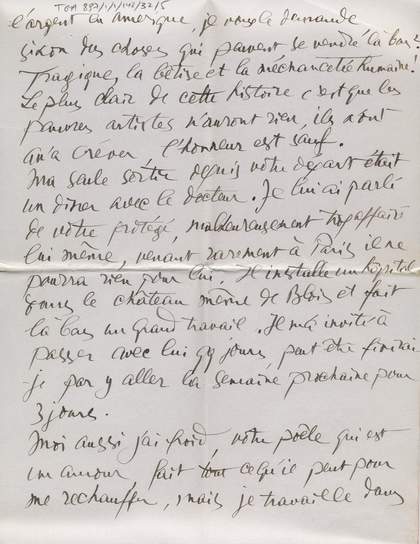 TGM 887/1/1/142/32/5
l'argent en amerique, je vous le demande
sinon des choses qui peuvent se vendre là bas?
Tragique, la bêtise et la méchanceté humaine!
Le plus clair de cette histoire c'est que les
pauvres artistes n'auront rien, ils n'ont
qu'a crever l'honneur est sauf.
Ma seule sortie depuis votre départ était
un diner avec le docteur. Je lui ai parlé
de votre protégé, malheureusement trop affairé
lui même, venant rarement à Paris il ne
pourra rien pour lui. Il installe un hopital
dans le château même de Blois et fait
là bas un grand travail. Il m'a invité à
passer avec lui qq jours, peut être finirai
je par y aller la semaine prochaine pour
3 jours.
Moi aussi j'ai froid, votre poêle qui est
un amour, fait tout ce qu'il peut pour
me rechauffer, mais je travaille dans